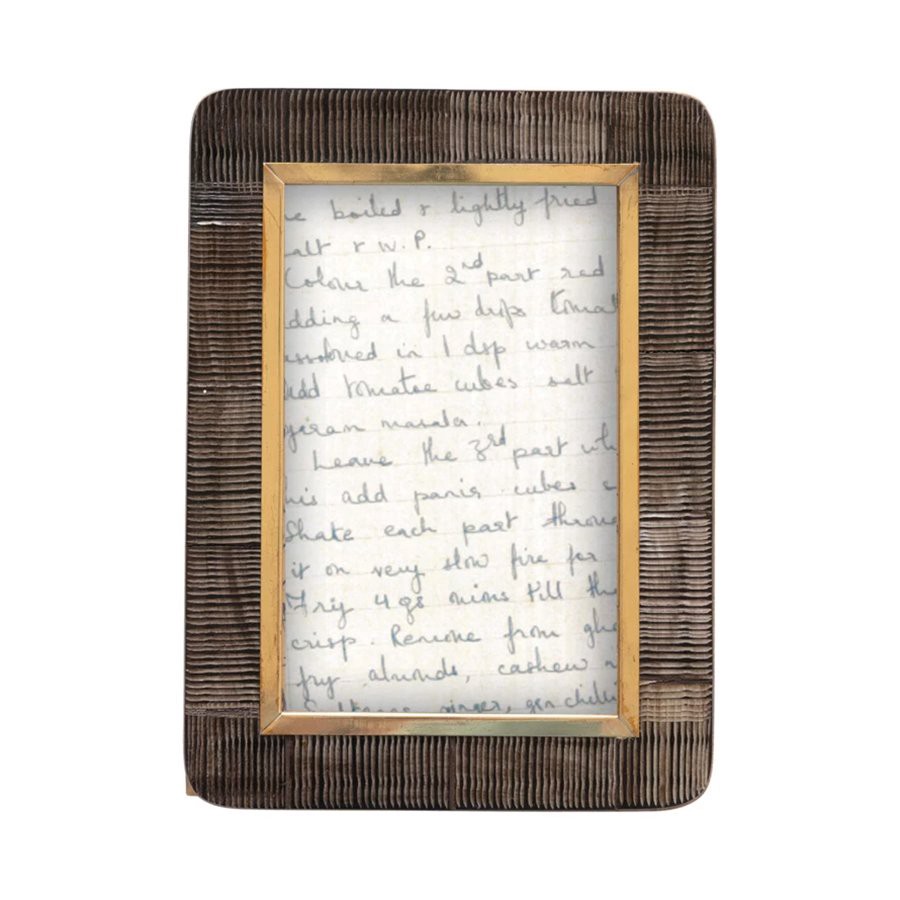 boiled & lightly fried
alt & W.P.
Colour the 2nd part red
dding a few drops tomat
issolved in 1 dsp warm
Add tomatoe cubes salt
garam masala.
Leave the 3rd part wh
his add panir cubes
Shake each part throu
it on very slow fire for
Fry 4 gs onions till the
crisp. Remove from ghe
fry almonds, cashew n
Sultanas ginger, grn chilli